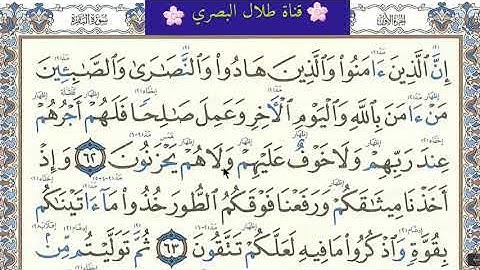 سُورَةُ البَقَرَةِ قناة طلال البصري الجزء الأول
إِنَّ ٱلَّذِينَ ءَامَنُوا۟ وَٱلَّذِينَ هَادُوا۟ وَٱلنَّصَٰرَىٰ وَٱلصَّٰبِـِٔينَ
مَنْ ءَامَنَ بِٱللَّهِ وَٱلْيَوْمِ ٱلْـَٔاخِرِ وَعَمِلَ صَٰلِحًا فَلَهُمْ أَجْرُهُمْ
عِندَ رَبِّهِمْ وَلَا خَوْفٌ عَلَيْهِمْ وَلَا هُمْ يَحْزَنُونَ ٦٢ وَإِذْ
أَخَذْنَا مِيثَٰقَكُمْ وَرَفَعْنَا فَوْقَكُمُ ٱلطُّورَ خُذُوا۟ مَآ ءَاتَيْنَٰكُم
بِقُوَّةٍ وَٱذْكُرُوا۟ مَا فِيهِ لَعَلَّكُمْ تَتَّقُونَ ٦٣ ثُمَّ تَوَلَّيْتُم مِّنۢ